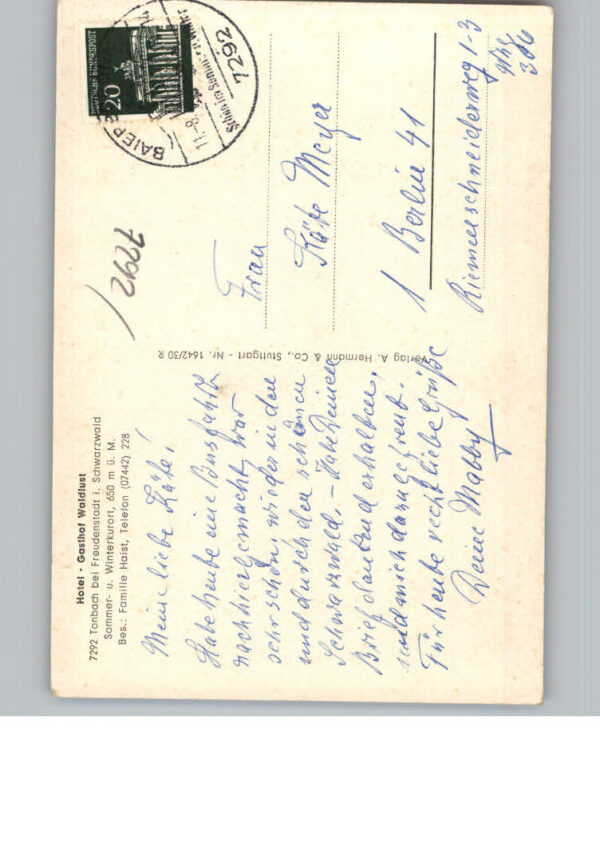 Hotel - Gasthof Waldlust
7292 Tonbach bei Freudenstadt i. Schwarzwald
Sommer- u. Winterkurort, 650 m ü. M.
Bes.: Familie Haist, Telefon (07442) 228
Meine liebe Käte!
Habe heute eine Omsfahrt
nach hier gemacht, war
sehr schön, wieder in den
und durch den schönen
Schwarzwald. - Habe Deinen
Brief dankend erhalten,
und mich darüber gefreut.
Für heute recht liebe Grüße
Deine Mabby
Verlag A. Hermann & Co., Stuttgart - Nr. 1642/30 R
7292
DEUTSCHE BUNDESPOST
20
BAIER
7292
11.-8.
Frau
Käte Meyer
1 Berlin 41
Riemenschneiderweg 1-3